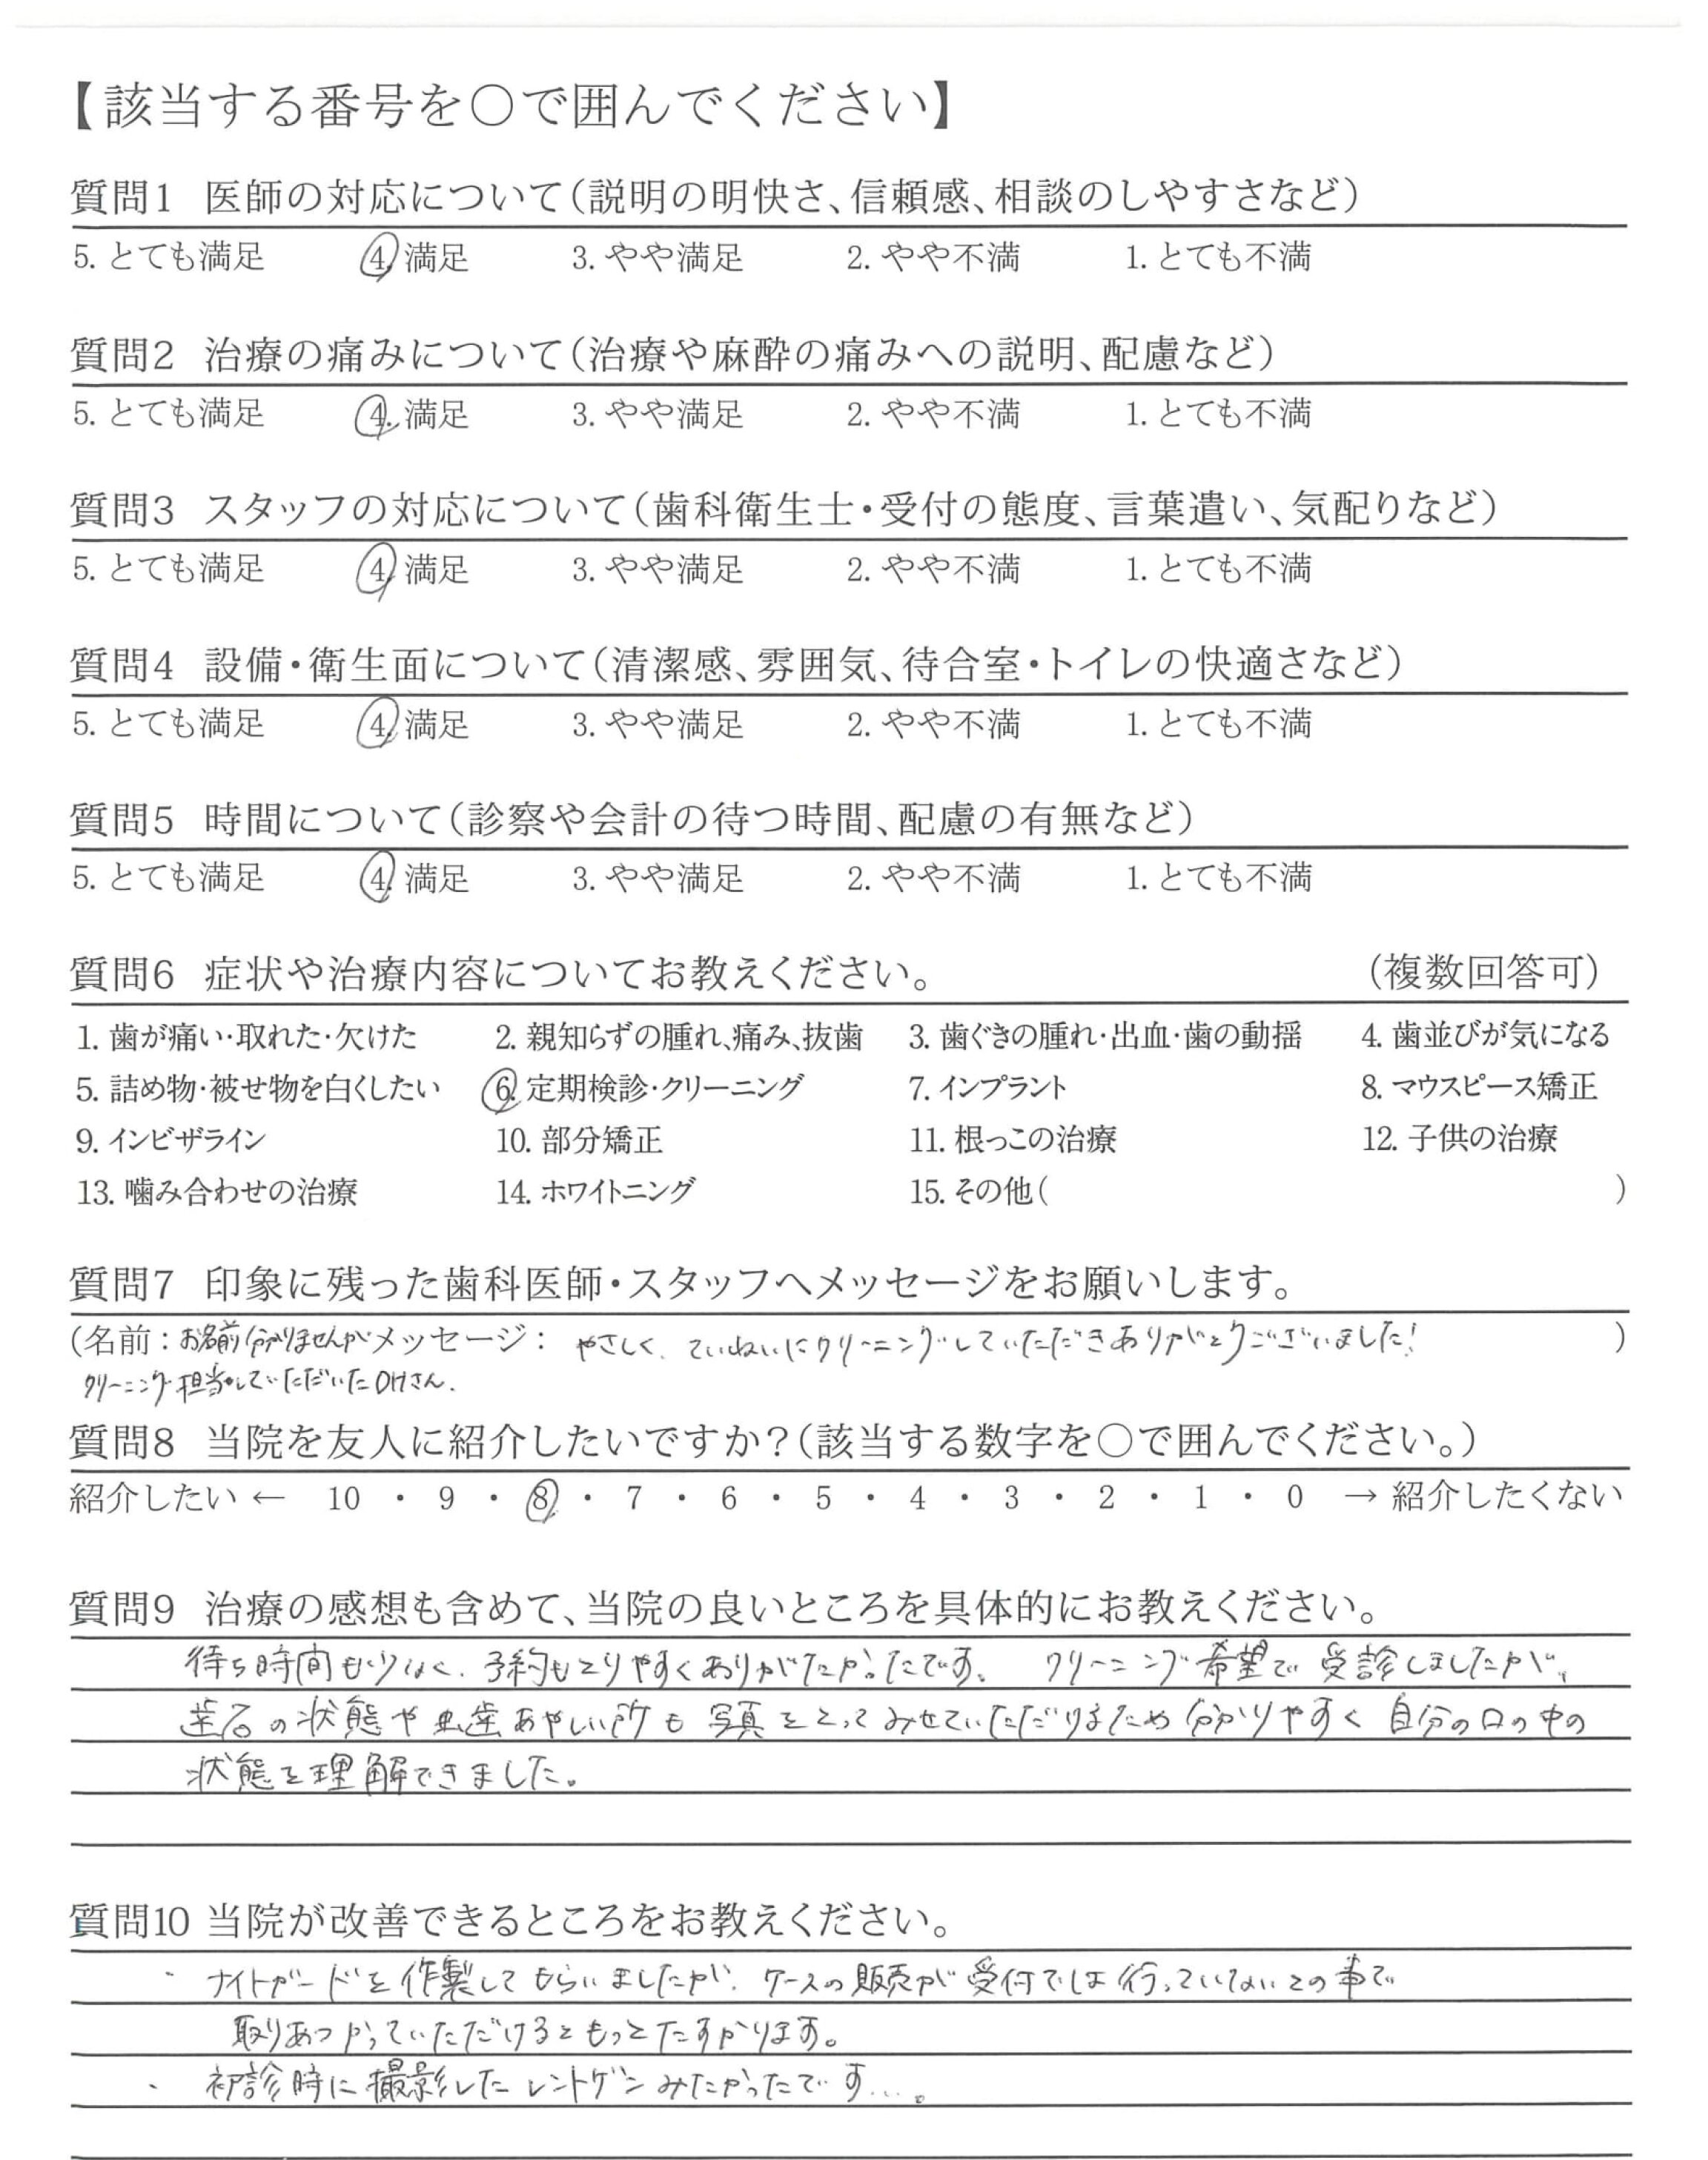 【該当する番号を○で囲んでください】
質問1 医師の対応について(説明の明快さ、信頼感、相談のしやすさなど)
5. とても満足 4. 満足 3. やや満足 2. やや不満 1. とても不満
質問2 治療の痛みについて(治療や麻酔の痛みへの説明、配慮など)
5. とても満足 4. 満足 3. やや満足 2. やや不満 1. とても不満
質問3 スタッフの対応について(歯科衛生士・受付の態度、言葉遣い、気配りなど)
5. とても満足 4. 満足 3. やや満足 2. やや不満 1. とても不満
質問4 設備・衛生面について(清潔感、雰囲気、待合室・トイレの快適さなど)
5. とても満足 4. 満足 3. やや満足 2. やや不満 1. とても不満
質問5 時間について(診察や会計の待つ時間、配慮の有無など)
5. とても満足 4. 満足 3. やや満足 2. やや不満 1. とても不満
質問6 症状や治療内容についてお教えください。 (複数回答可)
1. 歯が痛い・取れた・欠けた 2. 親知らずの腫れ、痛み、抜歯 3. 歯ぐきの腫れ・出血・歯の動揺 4. 歯並びが気になる
5. 詰め物・被せ物を白くしたい 6. 定期検診・クリーニング 7. インプラント 8. マウスピース矯正
9. インビザライン 10. 部分矯正 11. 根っこの治療 12. 子供の治療
13. 噛み合わせの治療 14. ホワイトニング 15. その他( )
質問7 印象に残った歯科医師・スタッフへメッセージをお願いします。
(名前：お名前分かりませんが メッセージ： やさしく、ていねいにクリーニングしていただきありがとうございました! )
クリーニング担当していただいたDHさん.
質問8 当院を友人に紹介したいですか?(該当する数字を○で囲んでください。)
紹介したい ← 10 ・ 9 ・ 8 ・ 7 ・ 6 ・ 5 ・ 4 ・ 3 ・ 2 ・ 1 ・ 0 → 紹介したくない
質問9 治療の感想も含めて、当院の良いところを具体的にお教えください。
待ち時間も少なく、予約もとりやすくありがたかったです。 クリーニング希望で受診しましたが、
歯石の状態や虫歯あやしい所も写真をとってみせていただけるため分かりやすく自分の口の中の
状態を理解できました。
質問10 当院が改善できるところをお教えください。
・ ナイトガードを作製してもらいましたが、ケースの販売が受付では行っていないとの事で
取りあつかっていただけるともっとたすかります。
・ 初診時に撮影したレントゲンみたかったです....。